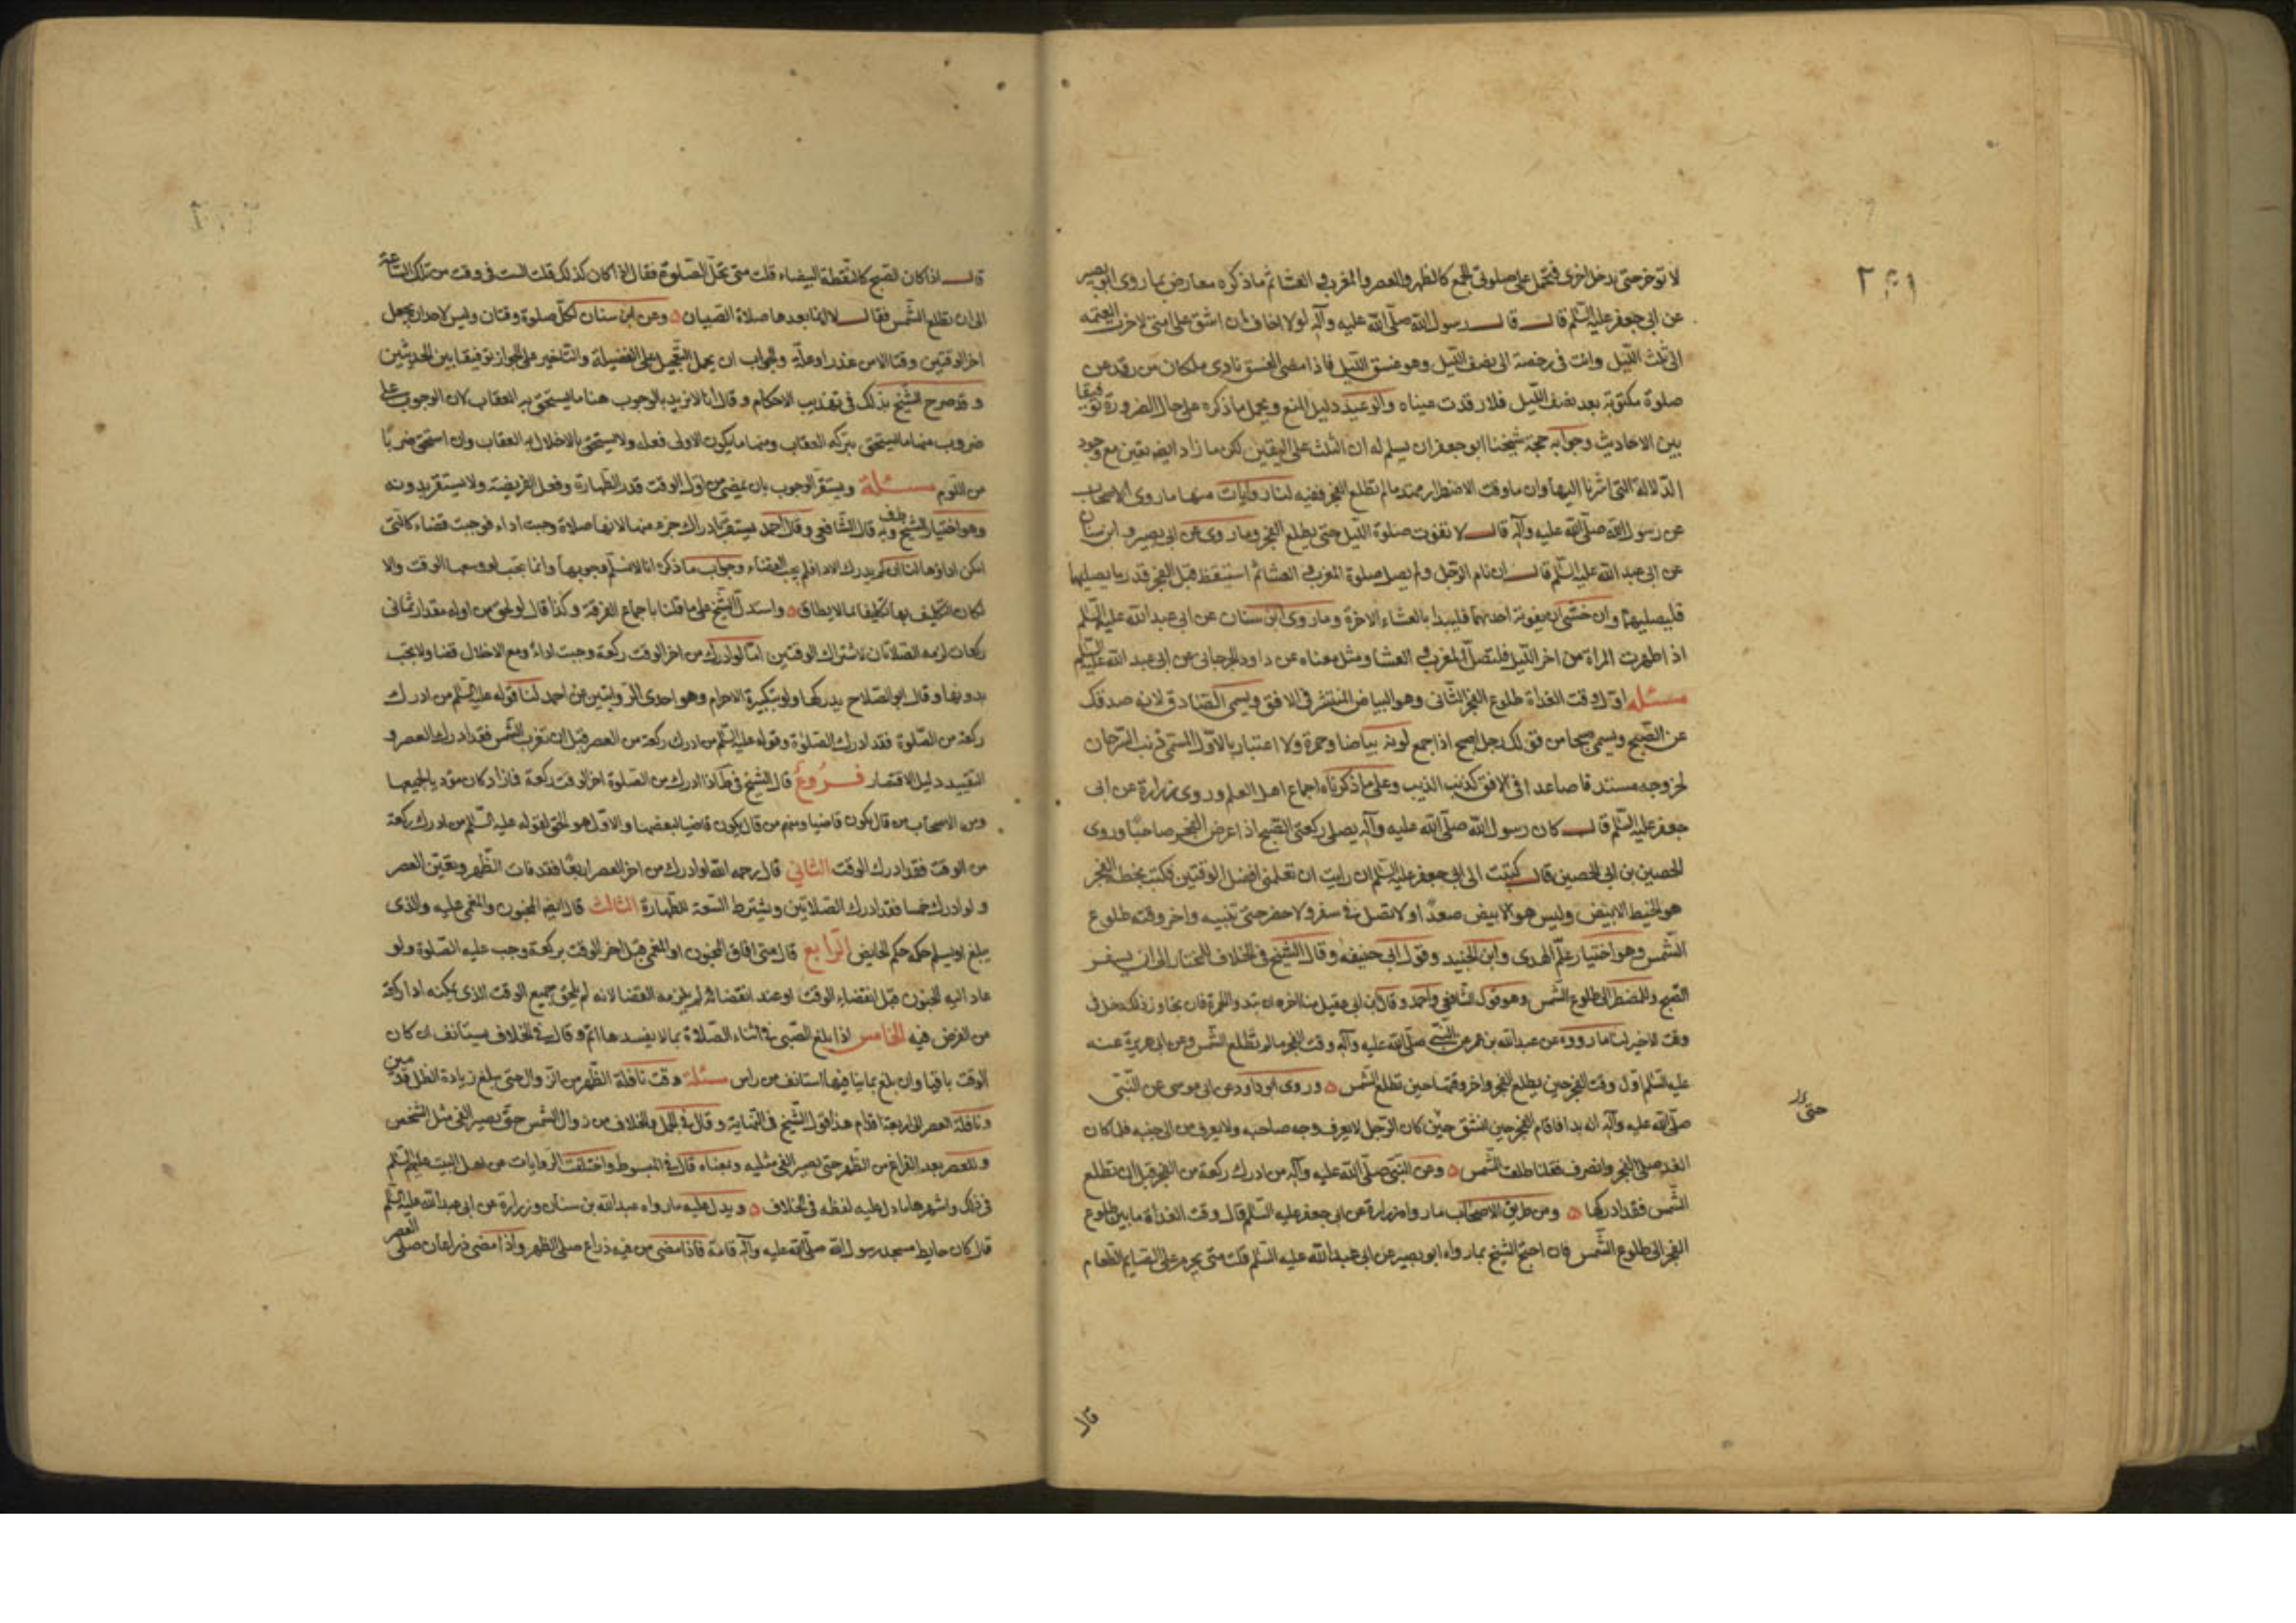 لا توخر حتى يدخل اخرى فتحمل على صلوتى الجمع كالظهر والعصر والمغرب و العشا ثم ما ذكره معارض بما روى ابو بصير
عن ابى جعفر عليه السّلم قال قال رسول الله صلّى الله عليه وآله لولا اخاف ان اشق على امتى لاخرت العتمه
الى ثلث اللّيل وانت فى رخصة الى نصف اللّيل وهو غسق اللّيل فاذا مضى الغسق نادى ملكان من رقد عن
صلوة مكتوبة بعد نصف اللّيل فلا رقدت عيناه والوعيد دليل المنع ويحمل ما ذكره على حال الضرورة توفيقا
بين الاحاديث وجوابه حجة شيخنا ابو جعفر ان يسلم له ان الثلث على اليقين لكن ما زاد ايضه يقين مع وجود
الدّلالة التى اشرنا اليها وان ما وقت الاضطرار ممتد ما لم تطلع الفجر ففيه لنا روايات منها ما روى الاصحاب
عن رسول الله صلّى الله عليه وآله قال لا تفوت صلوة اللّيل حتى يطلع الفجر وما روى عن ابى بصير و ابن سنان
عن ابى عبد الله عليه السّلم قال ان نام الرّجل ولم يصل صلوة المغرب و العشا ثم استيقظ قبل الفجر قدر ما يصليها
فليصليهما وان خشى ان يفوته احدهما فليبدا بالعشاء الاخرة وما روى ابن سنان عن ابى عبد الله عليه السّلم
اذا طهرت المراة من اخر اللّيل فلتصلّ المغرب و العشا ومثل معناه عن داود الجرجانى عن ابى عبد الله عليه السّلم
مسئله اوّل وقت الغداة طلوع الفجر الثّانى وهو البياض المنتشر فى الافق ويسمى الصّادق لانه صدقك
عن الصّبح ويسمى صبحا من قولك رجل اصبح اذا جمع لونه بياضا وحمرة ولا اعتبار بالاوّل المسمى ذنب السّرحان
لخروجه مستدقا صاعدا فى الافق كذنب الذيب وعلى ما ذكرناه اجماع اهل العلم وروى زرارة عن ابى
جعفر عليه السّلم قال كان رسول الله صلّى الله عليه وآله يصلى ركعتى الصّبح اذا عرض الفجر صاحبا وروى
الحصين بن ابى الحصين قال كتبت الى ابى جعفر عليه السّلم ان رايت ان تعلمنى افضل الوقتين فكتب بخطه الفجر
هو الخيط الابيض وليس هو الابيض صعدًا ولا تصل فى سفر ولا حضر حتى تبينه واخر وقته طلوع
الشّمس وهو اختيار علم الهدى وابن الجنيد وقول ابى حنيفه وقال الشيخ فى الخلاف للمختار الى ان يسفر
الصّبح وللمضطر الى طلوع الشّمس وهو قول الشّافعى واحمد وقال ابن ابى عقيل منا اخره ان تبدو الحمرة فان تجاوز ذلك دخل فى
وقت الاخير لنا ما رووه عن عبد الله بن عمر عن النّبى صلّى الله عليه وآله وقت الفجر ما لم تطلع الشّمس وعن ابى هريرة عنه
عليه السّلم اوّل وقت الفجر حين يطلع الفجر واخر وقتها حين تطلع الشّمس وروى ابو داود عن ابى موسى عن النّبى
صلّى الله عليه وآله انه بدا فاقام الفجر حين انشق حين كان الرّجل لا يعرف وجه صاحبه ولا يعرف من الى جنبه فلما كان
حتى
الغد صلى الفجر وانصرف فقلنا طلعت الشّمس وعن النّبى صلّى الله عليه وآله من ادرك ركعة من الفجر قبل ان تطلع
الشّمس فقد ادركها ومن طريق الاصحاب ما رواه زرارة عن ابى جعفر عليه السّلم قال وقت الغداة ما بين طلوع
الفجر الى طلوع الشّمس فان احتج الشّيخ بما رواه ابو بصير عن ابى عبد الله عليه السّلم قلت متى يحرم على الصّايم الطّعام
قال
قال اذا كان الصّبح كالقطبة البيضاء قلت متى تحلّ الصّلوة فقال اذا كان كذلك قلت الست فى وقت من تلك السّاعة
الى ان تطلع الشّمس فقال لا انما نعدها صلاة الصّبيان وعن ابن سنان لكلّ صلوة وقتان وليس لاحد ان يجعل
اخر الوقتين وقتا الا من عذر او علّة والجواب ان يحمل التّعجيل على الفضيلة والتّاخير على الجواز توفيقا بين الحديثين
وقد صرح الشّيخ بذلك فى تهذيب الاحكام وقال انا لا نريد بالوجوب هنا ما يستحق به العقاب لان الوجوب على
ضروب منها ما يستحق بتركه العقاب ومنها ما يكون الاولى فعله ولا يستحق بالاخلال به العقاب وان استحق ضربًا
من اللّوم مسئلة ويستقر الوجوب بان يمضى من اوّل الوقت قدر الطّهارة وفعل الفريضة ولا يستقر بدونه
وهو اختيار الشّيخ فى ف وبه قال الشّافعى وقال احمد يستقر بادراك جزء منها لانها صلاة وجبت اداء فوجبت قضاء كالّتى
امكن اداؤها لنا انه لم يدرك الاداء فلم يجب القضاء وجواب ما ذكره انا لا نسلّم وجوبها وانما تجب لو وسعها الوقت والا
لكان التكليف بها تكليفا بما لا يطاق واستدلّ الشّيخ على ما قلنا باجماع الفرقة وكذا قال لو لحق من اوله مقدار ثمانى
ركعات لزمه الصّلاتان لاشتراك الوقتين امّا لو ادرك من اخر الوقت ركعة وجبت اداءً ومع الاخلال قضا ولا تجب
بدونها وقال ابو الصّلاح يدركها ولو بتكبيرة الاحرام وهو احدى الرّوايتين عن احمد لنا قوله عليه السّلم من ادرك
ركعة من الصّلوة فقد ادرك الصّلوة وقوله عليه السّلم من ادرك ركعة من العصر قبل ان تغرب الشّمس فقد ادرك العصر و
التقييد دليل الاقتصار فروع قال الشّيخ فى ط اذا ادرك من الصّلوة اخر الوقت ركعة فاذا كان مؤديا لجميعها
ومن الاصحاب من قال يكون قاضيا ومنهم من قال يكون قاضيا لبعضها والاوّل هو الحق لقوله عليه السّلم من ادرك ركعة
من الوقت فقد ادرك الوقت الثانى قال رحمه الله لو ادرك من اخر العصر اربعًا فقد فات الظّهر وتعيّن العصر
ولو ادرك خمسا فقد ادرك الصّلاتين ويشترط السّعة للطّهارة الثالث قال ايضه المجنون والمغمى عليه والّذى
يبلغ او يسلم حكمه حكم الحايض الرابع قال متى افاق المجنون او المغمى قبل اخر الوقت بركعة وجب عليه الصّلوة ولو
عاد اليه الجنون قبل انقضاء الوقت او عند انقضائه لم يلزمه القضا لانه لم يلحق جميع الوقت الذى يمكنه اداركة
من الفرض فيه الخامس اذا بلغ الصّبى فى اثناء الصّلاة بما لا يفسدها اتم وقال فى الخلاف يستانف ان كان
الوقت باقيا وان بلغ بما ينافيها استانف من راس مسئلة وقت نافلة الظّهر من الزّوال حتى يبلغ زيادة الظّل قدمين
ونافلة العصر الى اربعة اقدام هذا قول الشّيخ فى النّهاية وقال فى الجمل والخلاف من زوال الشّمس حتى يصير الفى مثل الشّخص
وللعصر بعد الفراغ من الظّهر حتى يصير الفى مثليه وبمعناه قال فى المبسوط واختلفت الروايات عن اهل البيت عليهم السّلم
فى ذلك واشهرها ما دل عليه لفظه فى الخلاف ويدل عليه ما رواه عبد الله بن سنان وزرارة عن ابى عبد الله عليه السّلم
قال كان حايط مسجد رسول الله صلّى الله عليه وآله قامة فاذا مضى من فيه ذراع صلى الظهر واذا مضى ذراعان صلى العصر